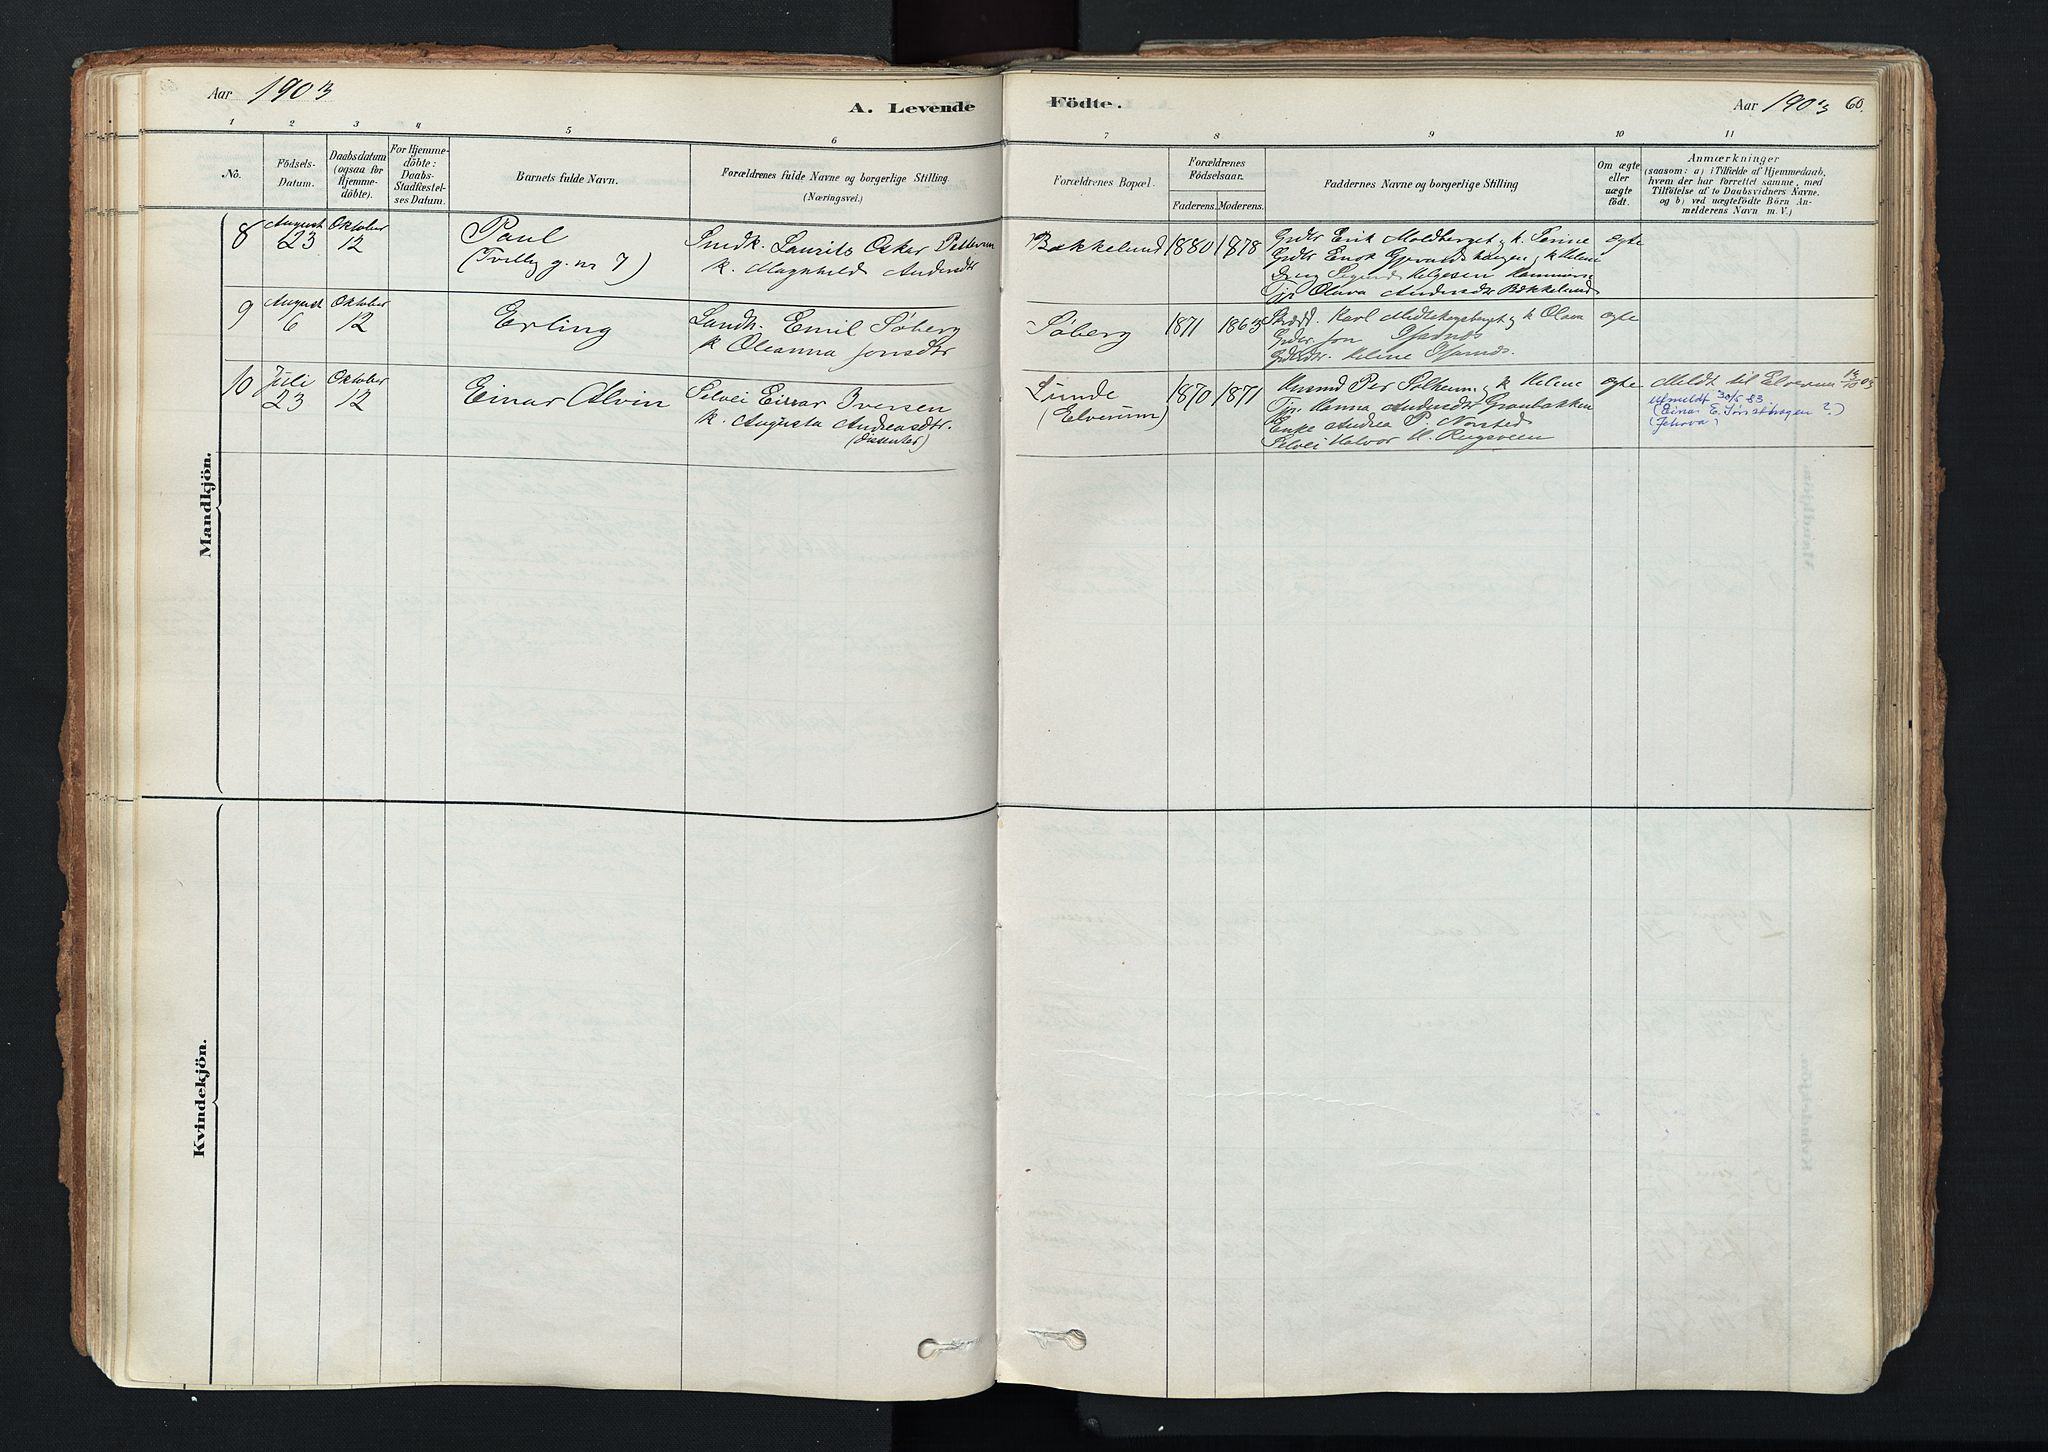 Aar 1903
A. Levende Födte.
Aar 1903 60.
1 2 3 4 5 6 7 8 9 10 11
No.
Födsels-
Datum.
Daabsdatum
(ogsaa for
Hjemme-
döbte).
For Hjemme-
döbte:
Daabs-
Stadfæstel-
ses Datum.
Barnets fulde Navn.
Forældrenes fulde Navne og borgerlige Stilling
(Næringsvei.)
Forældrenes Bopæl.
Forældrenes
Födselsaar.
Faderens. Moderens.
Faddernes Navne og borgerlige Stilling
Om ægte
eller
uægte
födt.
Anmærkninger
(saasom: a) i Tilfælde af Hjemmedaab,
hvem der har forrettet samme, med
Tilföielse af to Daabsvidners Navne,
og b) ved uægtefödte Börn An-
melderens Navn m. V.)
Mandkjön.
8
August
23
Oktober
12
Paul
(Tvilling g. nr 7)
Smdk. Laurits Oskar Pettersen
k. Magnhild Andersdtr
Bakkelund
1880 1878
Grdbr Erik Moldberget og k. Tenine
Grdbr Enok og k Helene
Ung Sigurd Helgesen
Tjp Olava Andersdtr Bakkelund
ægte
9
August
6
Oktober
12
Erling
Landh. Emil Söberg
k Oleanna Jonsdtr
Söberg
1871 1863
Karl og k Olava
Grdbr. Jon
Helene
ægte
10
Juli
23
Oktober
12
Einar Alvin
Selvei Einar Iversen
k. Augusta Andreasdtr.
(dissenter)
Lunde
(Elverum)
1870 1871
Husmd Per Solheim og k Helene
Tjp. Hanna Andersdtr Granbakken
Enke Andrea P. Norsted
Selvei Halvor H. Rugsveen
ægte
Meldt til Elverum 14/10 03
Utmeldt 30/5 83
(Einar E. ?)
(Jehova)
Kvindekjön.